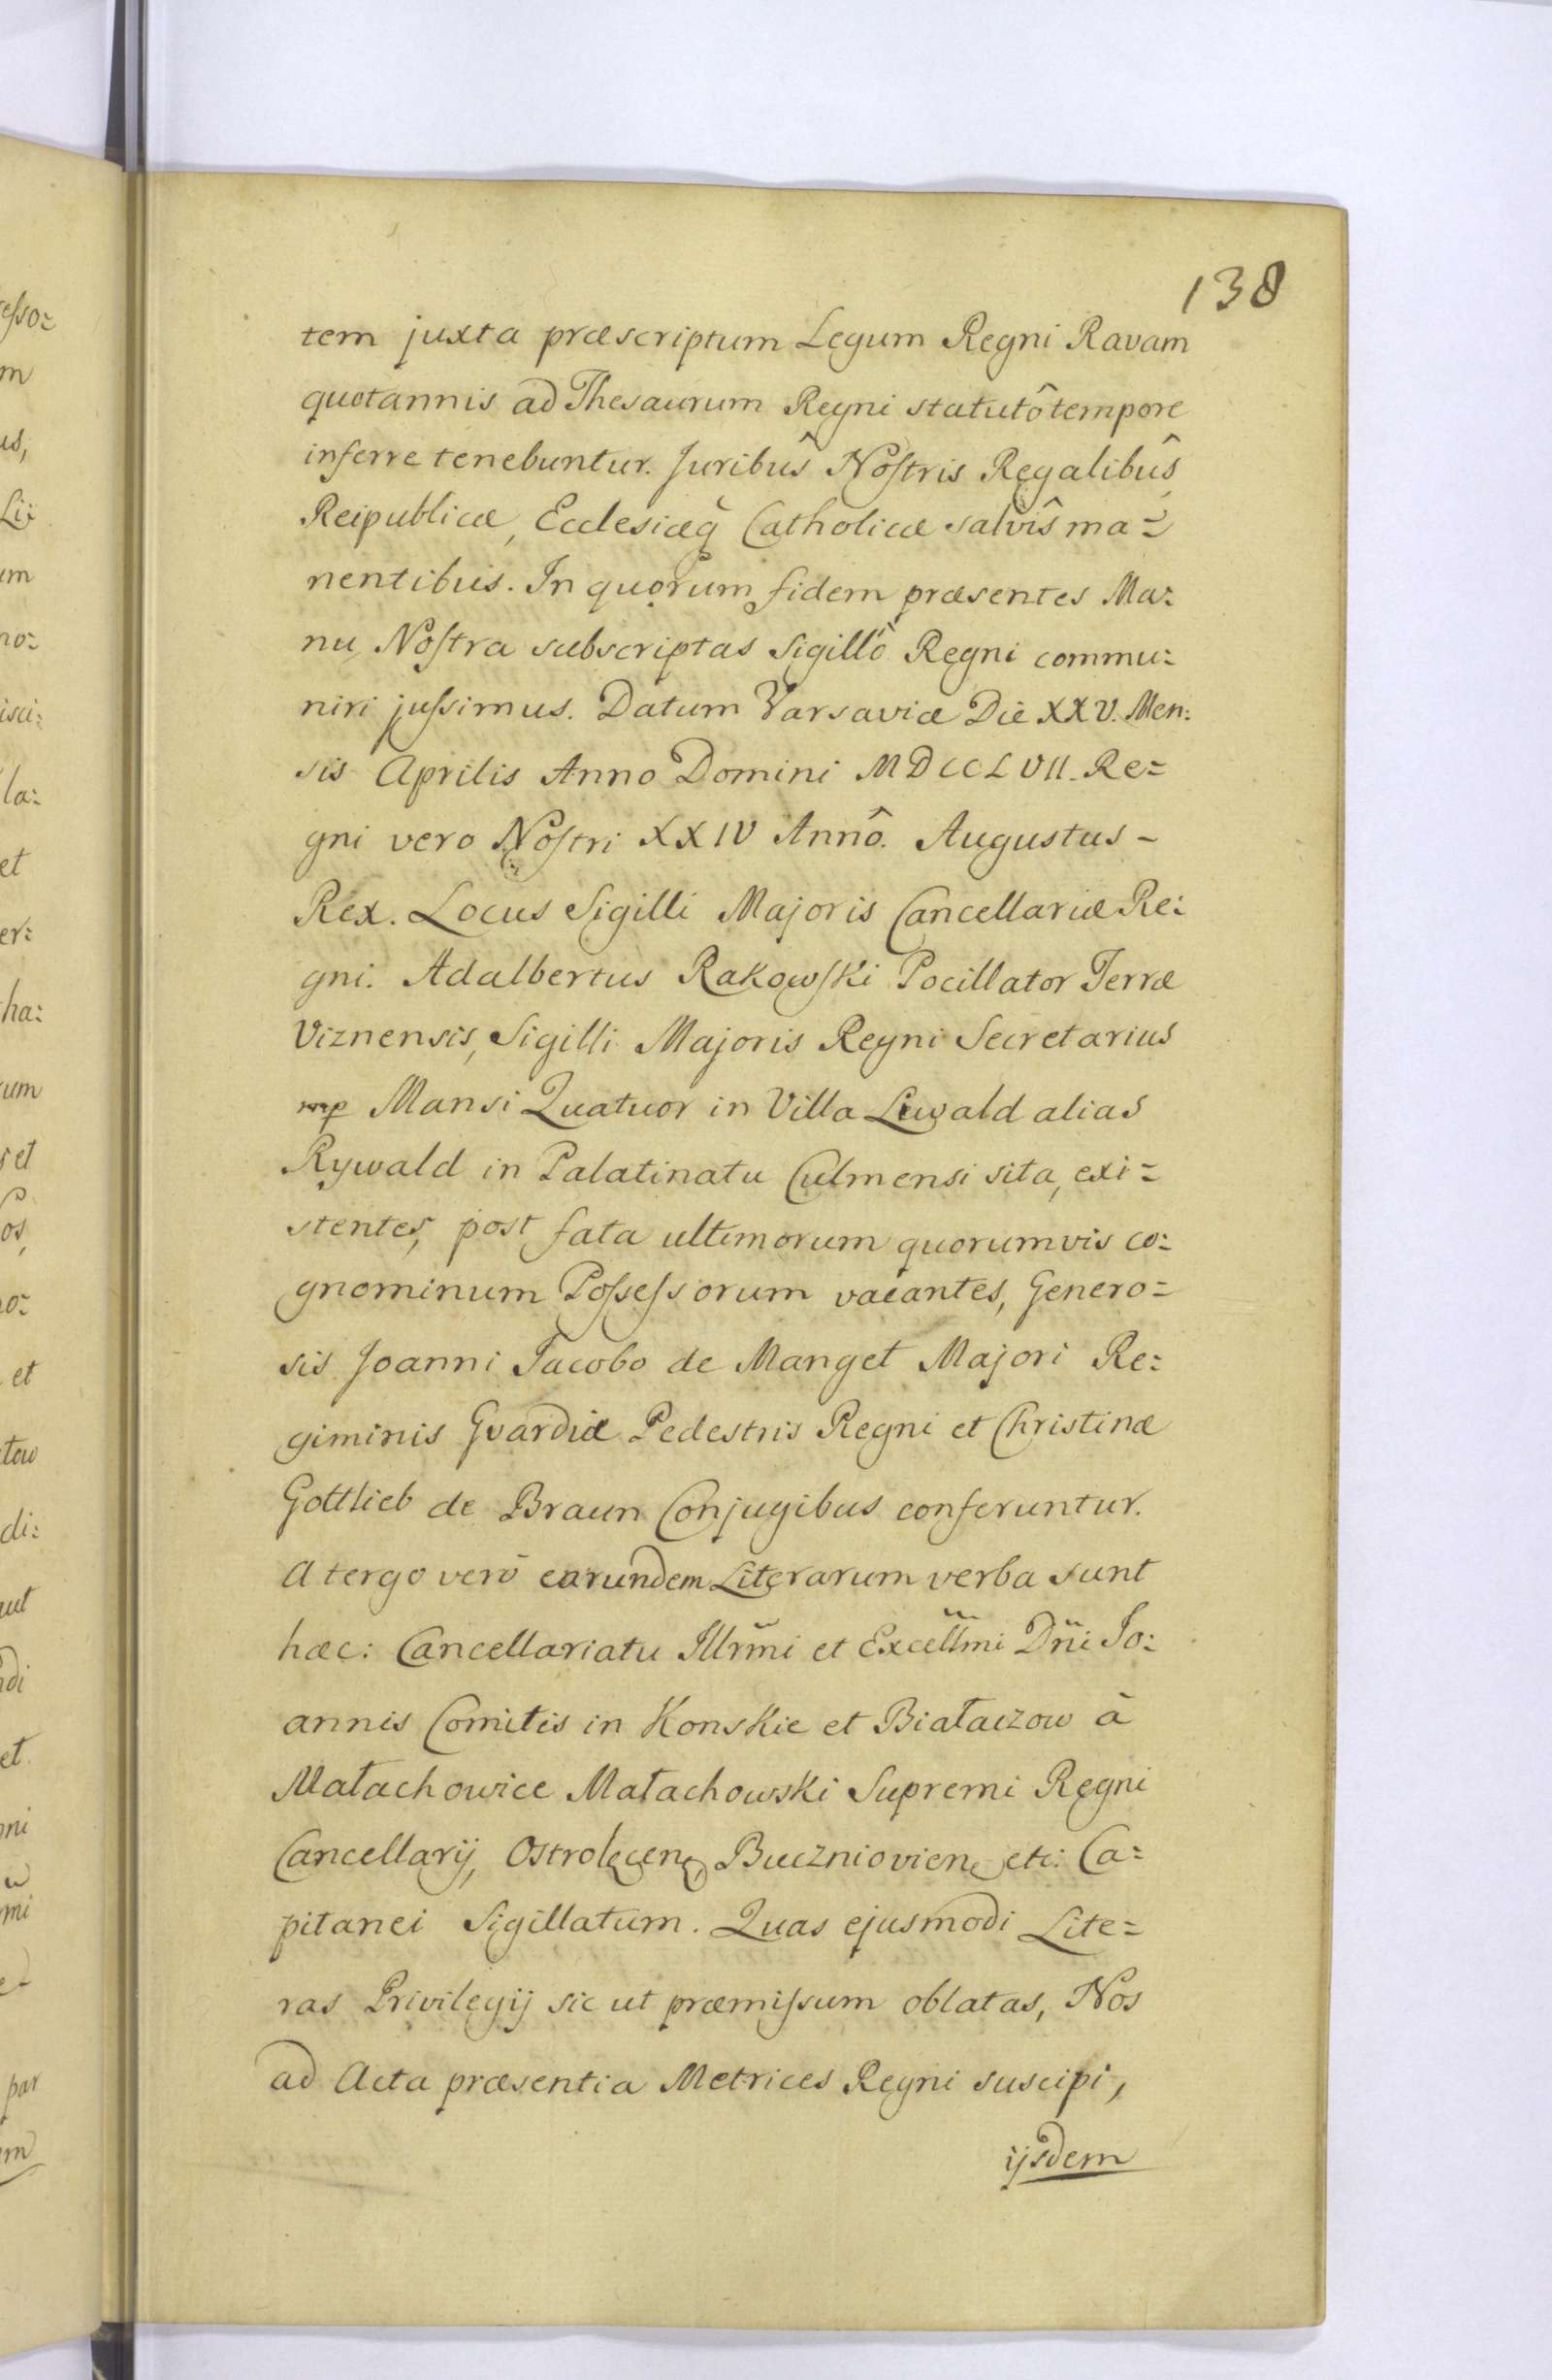 138
tem juxta præscriptum Legum Regni Ravam
quotannis ad Thesaurum Regni statutô tempore
inferre tenebuntur. Juribûs Nostris Regalibûs,
Reipublicæ, Ecclesiæq̀ Catholicæ salvîs ma=
nentibus. In quorum fidem præsentes Ma:
nu Nostra subscriptas Sigillô Regni commu:
niri jussimus. Datum Varsaviæ Die XXV. Men:
sis Aprilis Anno Domini MDCCLVII. Re=
gni vero Nostri XXIV Annô. Augustus –
Rex. Locus Sigilli Majoris Cancellariæ Re:
gni. Adalbertus Rakowski Pocillator Terræ
Viznensis, Sigilli Majoris Regni Secretarius
mp Mansi Quatuor in Villa Liwald alias
Rywald in Palatinatu Culmensi sita, exi=
stentes, post fata ultimorum quorumvis co:
gnominum Possessorum vacantes, Genero=
sis Joanni Jacobo de Manget Majori Re:
giminis Gvardiæ Pedestris Regni et Christinæ
Gottlieb de Braun Conjugibus conferuntur.
A tergo verò earundem Literarum verba sunt
hæc: Cancellariatu Illrm̃i et Excellm̃i Dñi Jo:
annis Comitis in Konskie et Białaczow à
Małachowice Małachowski Supremi Regni
Cancellarij, Ostrołęcen, Buczniovien, etc: Ca=
pitanei Sigillatum. Quas ejusmodi Lite=
ras Privilegij sic ut præmissum oblatas, Nos
ad Acta præsentia Metrices Regni suscipi,
ijsdem